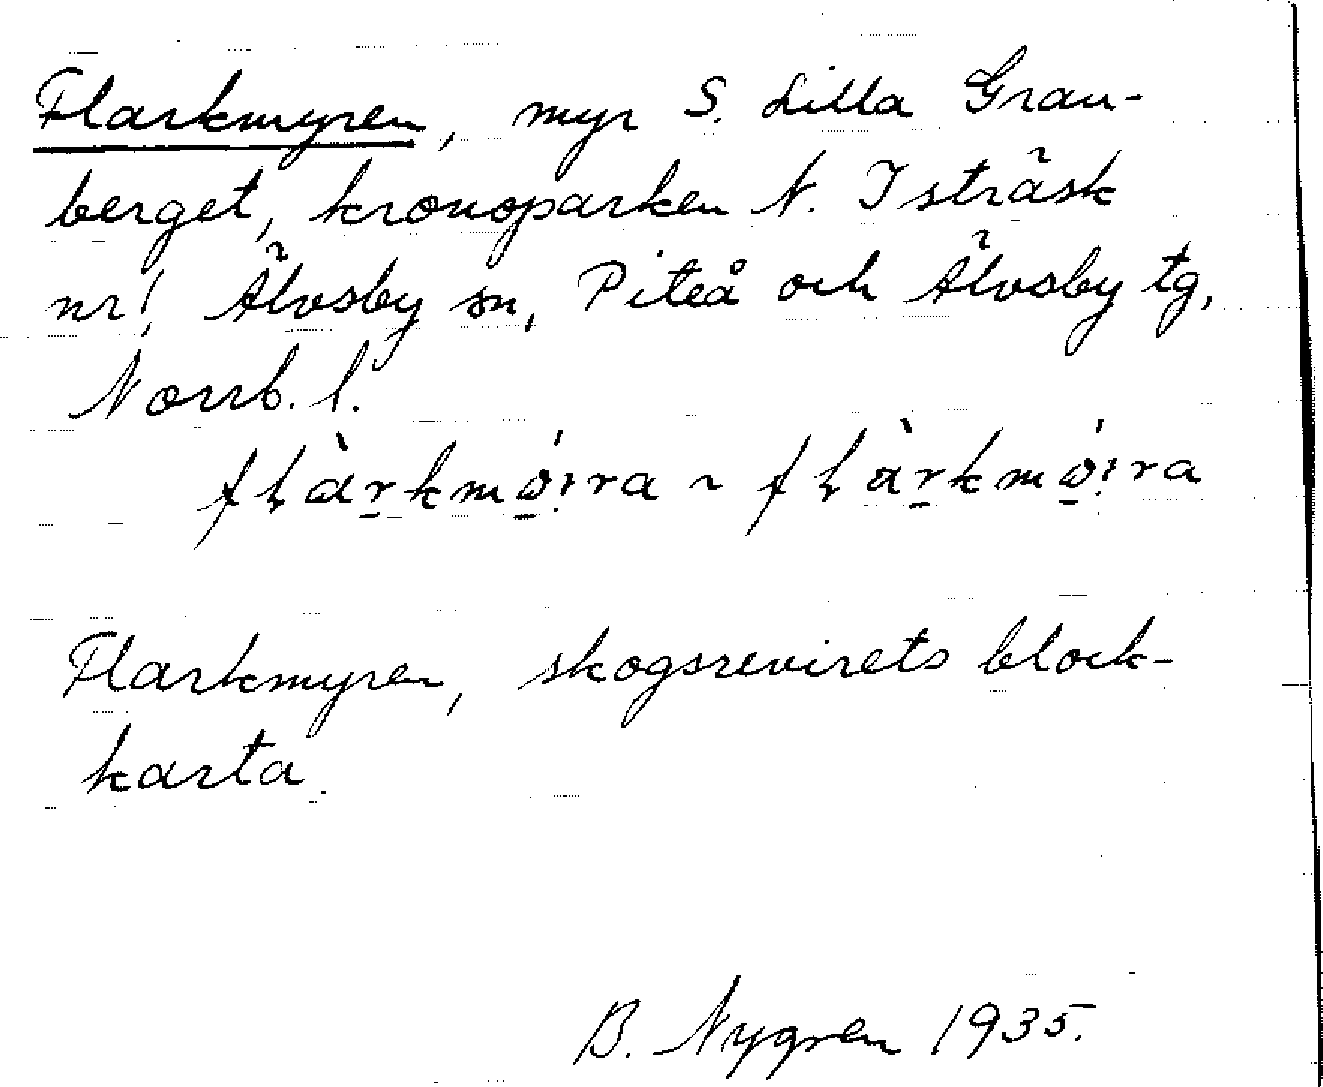 Flarkmyren, myr S. Lilla Gran-
berget, kronoparken N. Isträsk
nr 1, Älvsby sn, Piteå och Älvsby tg,
Norrb. l.
flàrkmǿira ~ flàrkmǿira
Flarkmyren, skogsrevirets block-
karta.
B. Nygren 1935.